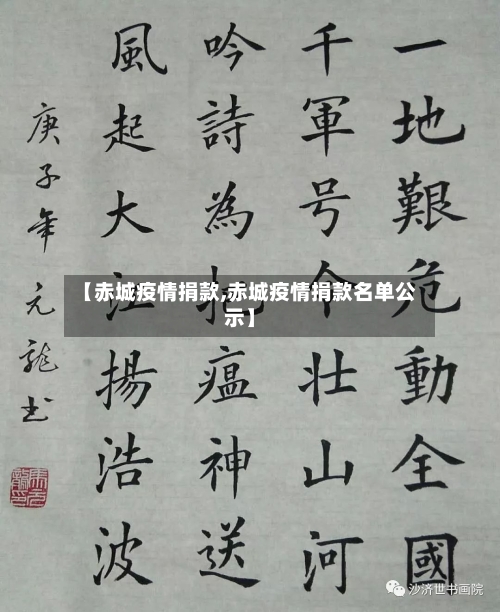 一地艱危動全國
千軍号令壮山河
吟詩為把瘟神送
風起大江揚浩波
庚子年元龍书
【赤城疫情捐款,赤城疫情捐款名单公
示】
沙济世书画院